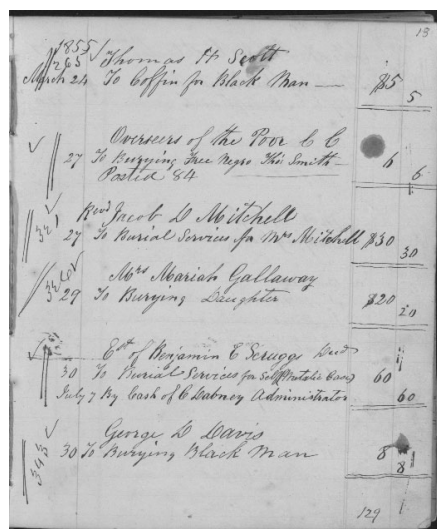 13
1855 Thomas H Scott
265
March 24 To Coffin for Black Man — $5
5
Overseers of the Poor C C
27 To Burying Free Negro Thos Smith 6
Posted 84 6
Revd Jacob D Mitchell
27 To Burial Services for Mrs Mitchell $30
30
Mrs Mariah Gallaway
29 To Burying Daughter $20
20
Est of Benjamin C Scruggs Decd
30 To Burial Services for Self (Metalic Case) 60
July 7 By Cash of C Dabney Administrator 60
George D Davis
343
30 To Burying Black Man 8
8
129